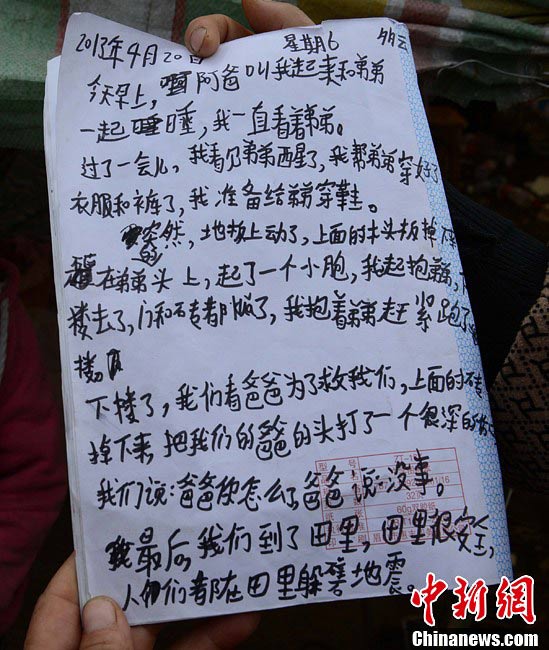 2013年4月20日 星期6
今天早上，阿爸叫我起来和弟弟
一起睡，我一直看着弟弟。
过了一会儿，我看见弟弟西星了，我帮弟弟穿好了
衣服和裤了，我准备给弟弟穿鞋。
突然，地板上动了，上面的木头板掉
在弟弟头上，起了一个小胞，我起抱弟弟，
楼去了，门和石专都
了，我抱着弟弟赶王紧跑了
楼。
下楼了，我们看爸爸为了救我们，上面的石专
掉下来，把我们的爸爸的头打了一个很深的
我们说：爸爸你怎么了，爸爸说：没事。
最后，我们到了田里，田里很安全，
人们们都在田里躲着地震。
60g
中新网
Chinanews.com